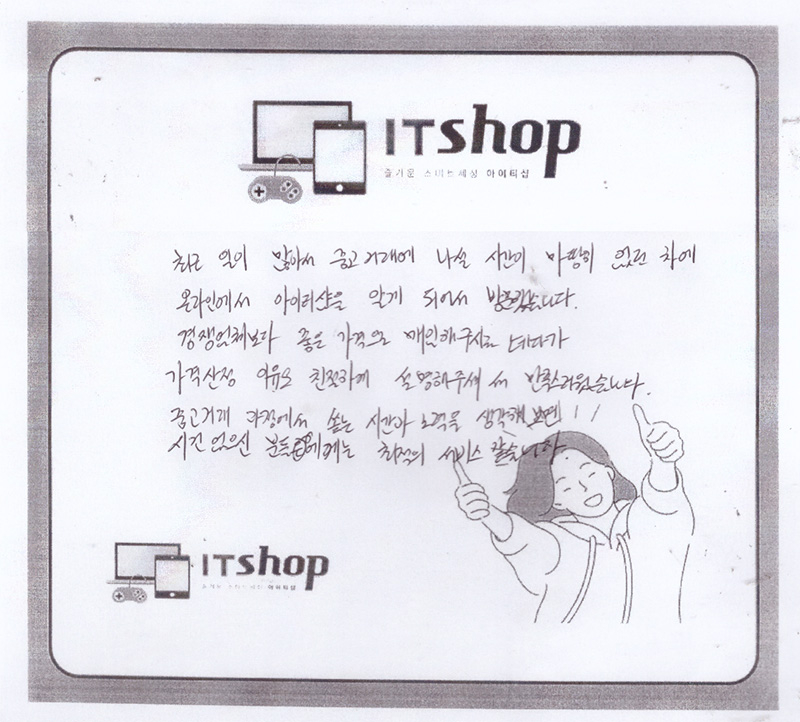 ITshop
즐거운 스마트세상 아이티샵
최근 일이 많아서 중고거래에 나설 시간이 마땅히 없던 차에
온라인에서 아이티샵을 알게 되어서 방문했습니다.
경쟁업체보다 좋은 가격으로 매입해주시는 데다가
가격산정 이유도 친절하게 설명해주셔서 만족스러웠습니다.
중고거래 과정에서 쏟는 시간과 노력을 생각해 보면
시간 없으신 분들에게는 최적의 서비스 같습니다
ITshop
아이티샵